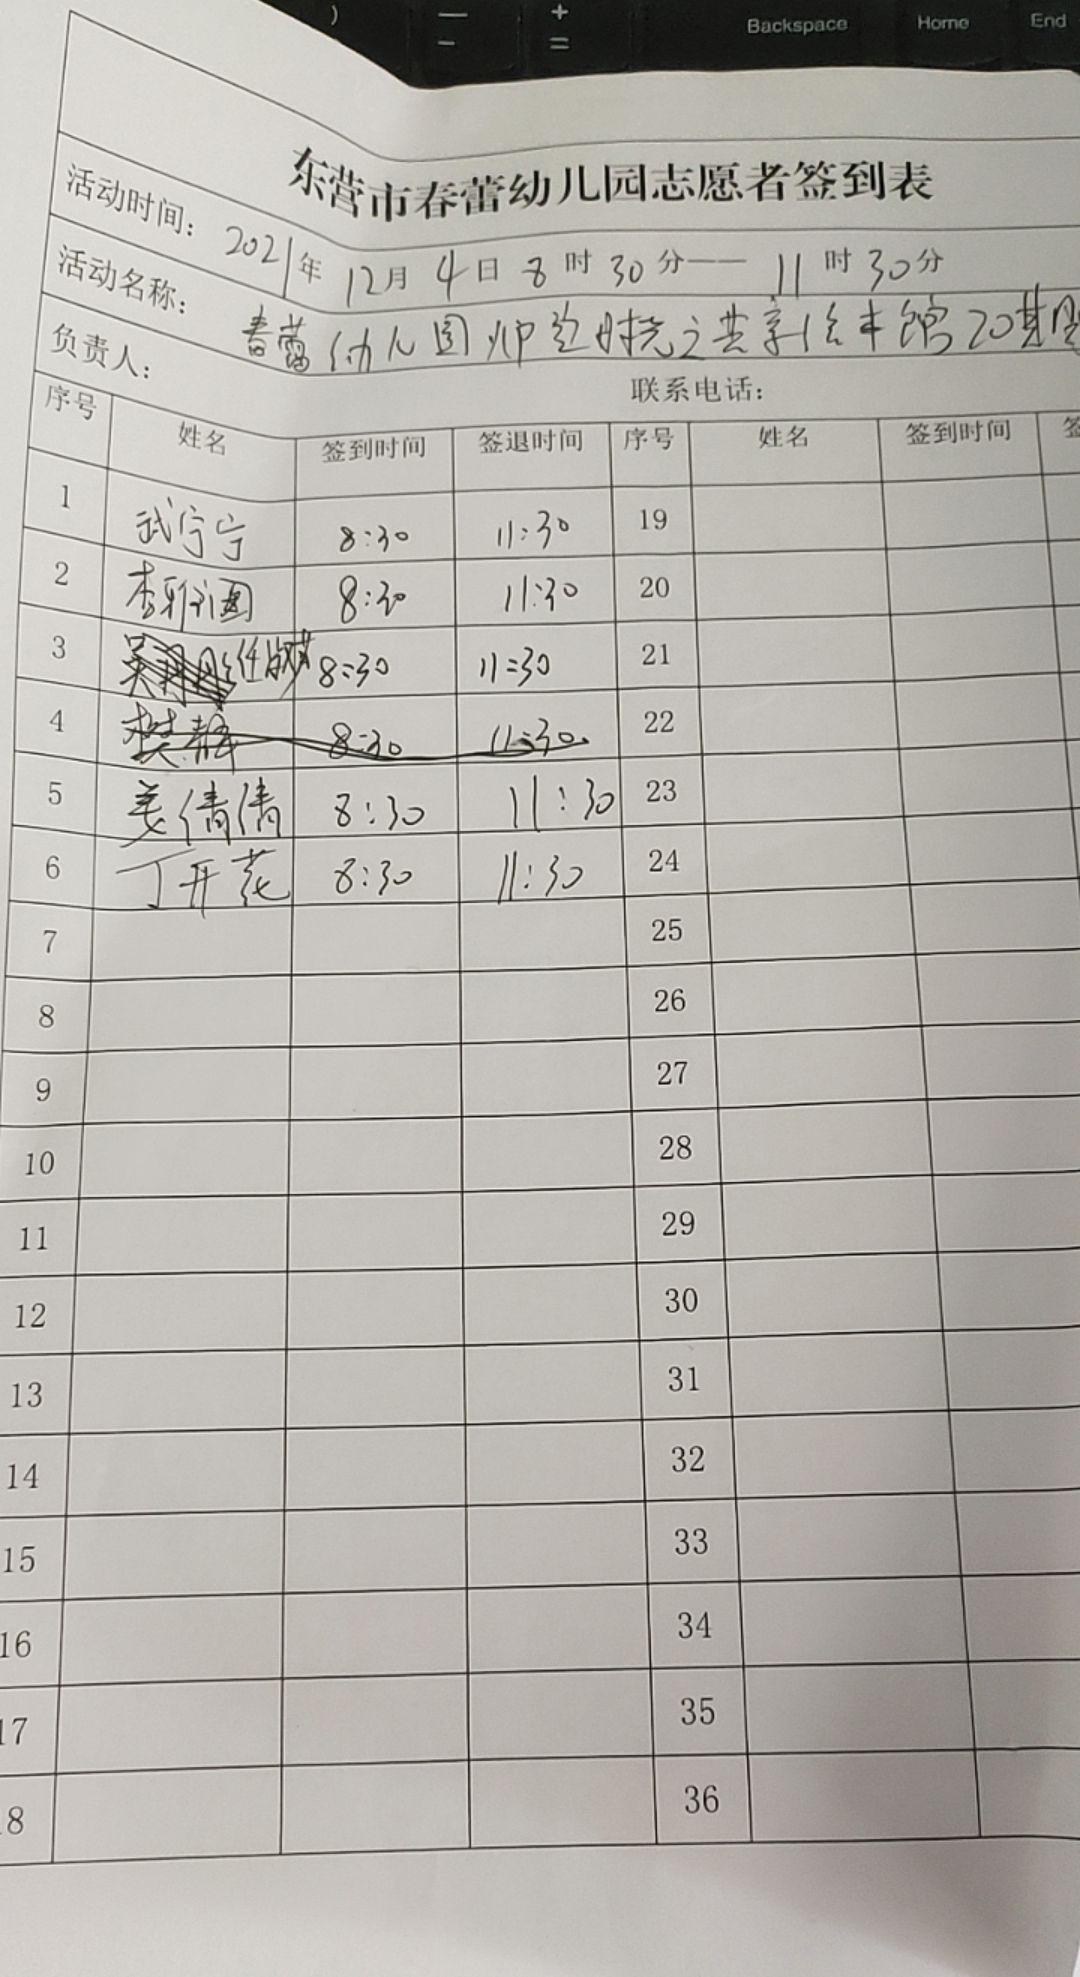 ) — - + = Backspace Home End
东营市春蕾幼儿园志愿者签到表
活动时间: 2021年 12月 4日 8时 30分—— 11时 30分
活动名称: 春蕾幼儿园 时光之共享绘本馆20期
负责人: 联系电话:
序号 姓名 签到时间 签退时间 序号 姓名 签到时间 签
1 武宁宁 8:30 11:30 19
2 李雅 8:30 11:30 20
3 8:30 11:30 21
4 樊静 8:30 11:30 22
5 姜倩倩 8:30 11:30 23
6 丁开花 8:30 11:30 24
7 25
8 26
9 27
10 28
11 29
12 30
13 31
14 32
15 33
16 34
17 35
18 36